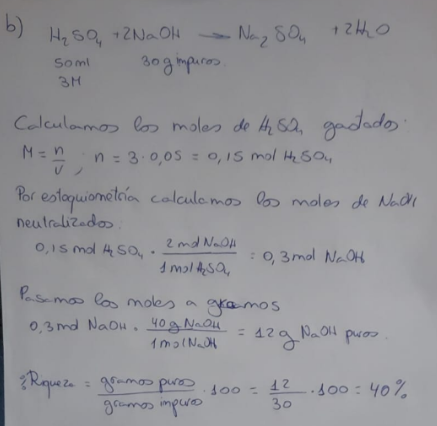 b) H₂SO₄ + 2NaOH → Na₂SO₄ + 2H₂O
50ml 30g impuros.
3M
Calculamos los moles de H₂SO₄ gastados.
M = n/V ; n = 3·0,05 = 0,15 mol H₂SO₄
Por estequiometría calculamos los moles de NaOH
neutralizados.
0,15 mol H₂SO₄ · 2 mol NaOH / 1 mol H₂SO₄ = 0,3 mol NaOH
Pasamos los moles a gramos
0,3 mol NaOH · 40 g NaOH / 1 mol NaOH = 12 g NaOH puros.
Riqueza = gramos puros / gramos impuros · 100 = 12 / 30 · 100 = 40%